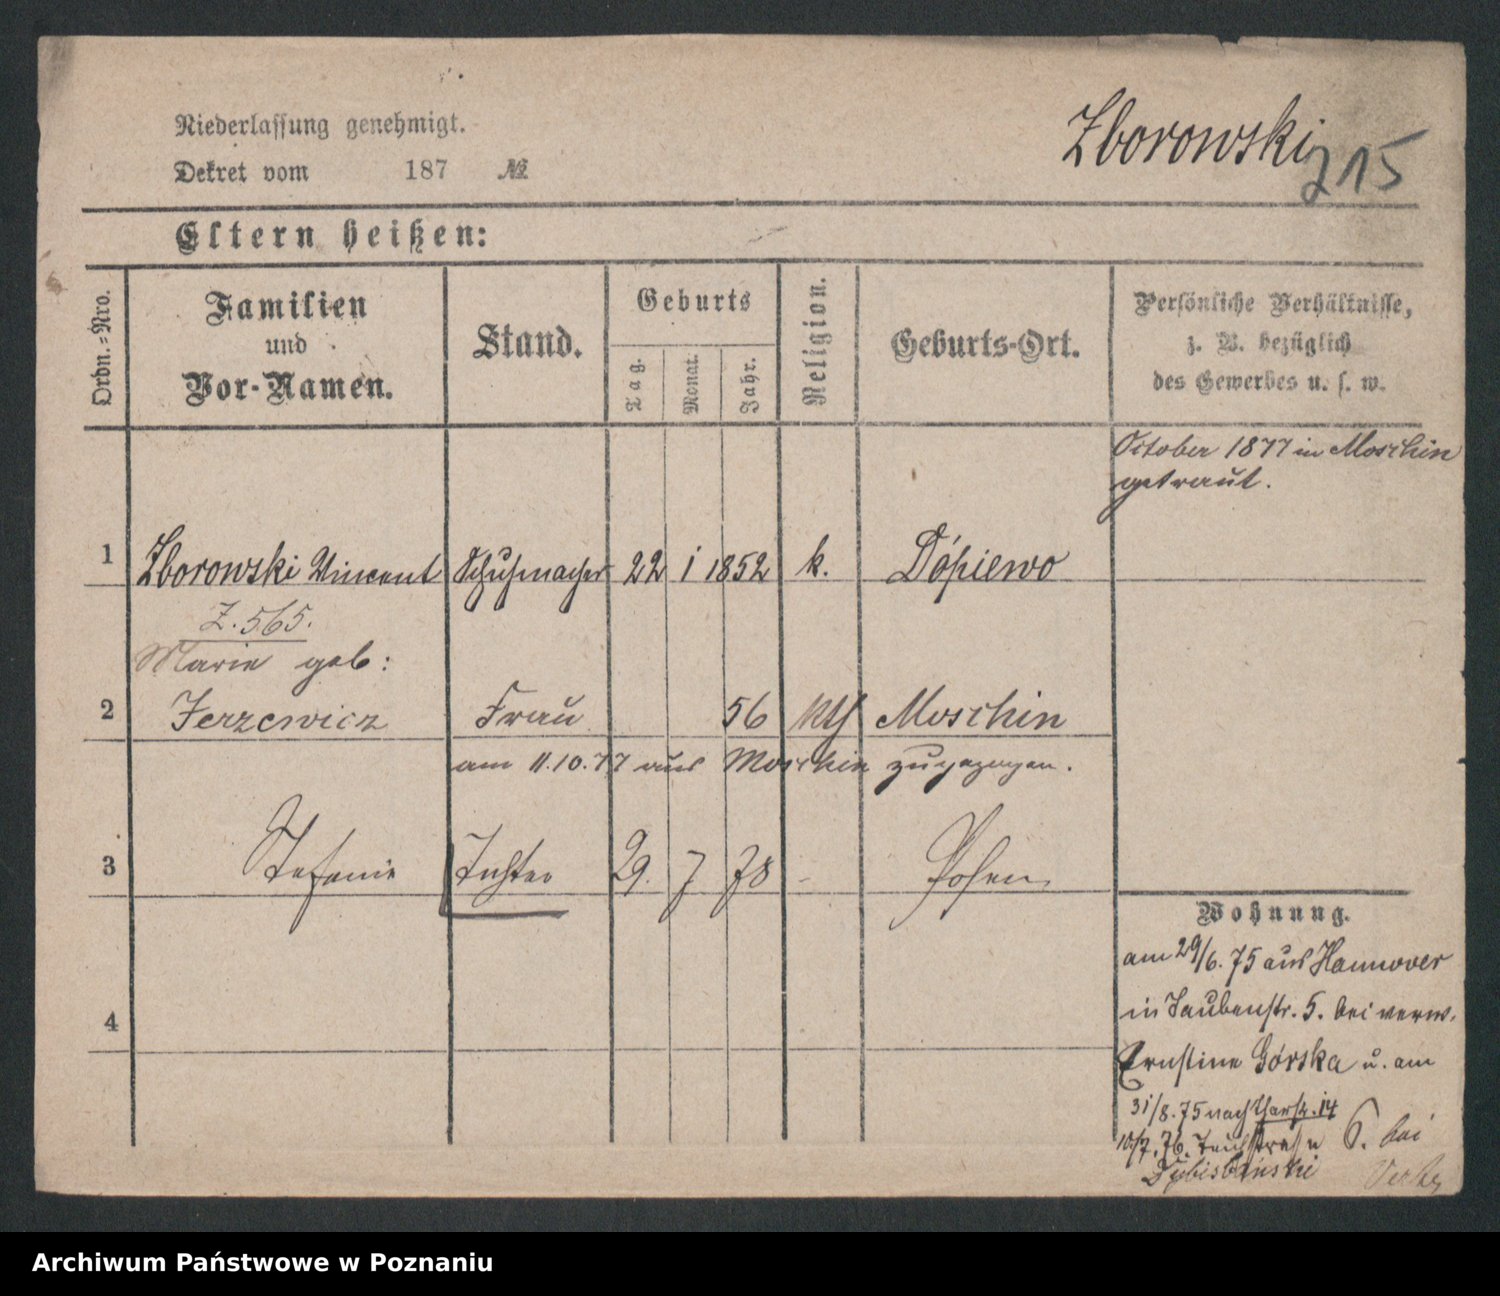 Niederlassung genehmigt.
Dekret vom 187 №
Zborowski
215
Eltern heißen:
Ordn.-Nro.
Familien
und
Vor-Namen.
Stand.
Geburts
Tag.
Monat.
Jahr.
Religion.
Geburts-Ort.
Persönliche Verhältnisse,
z. B. bezüglich
des Gewerbes u. s. w.
October 1877 in Moschin
getraut.
1 Zborowski Vincent Schuhmacher 22 1 1852 k. Dopiewo
Z. 565.
Marie geb:
2 Jerzewicz Frau 56 kth Moschin
am 11.10.77 aus Moschin zugezogen.
3 Stefanie Tochter 29. 7 78 - Posen
4
Wohnung.
am 29/6. 75 aus Hannover
in Taubenstr. 5. bei verw.
Ernstine Górska u. am
31/8. 75 nach 14
10/7. 76. 6. bei
Archiwum Państwowe w Poznaniu